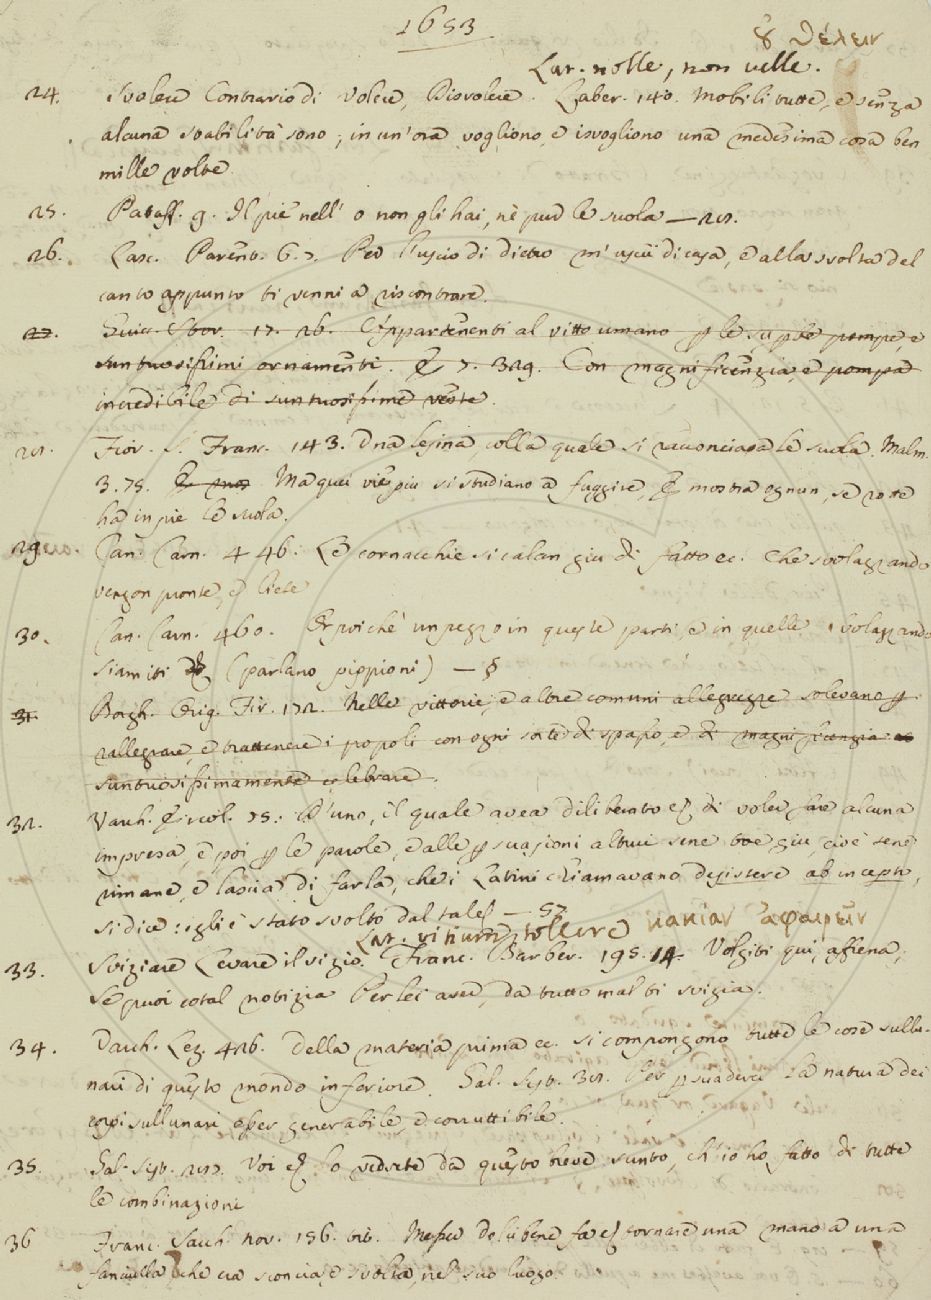 1653
οὐ θέλειν
Lat. nolle, non velle.
24. Svolere Contrario di volere, Disvolere. Laber. 140. Mobili tutte, e senza
alcuna stabilità sono; in un'ora vogliono, e isvogliono una medesima cosa ben
mille volte.
25. Pataff. 9. Il piè nell' o non gli hai, nè può le suola —
26. Lasc. Parent. 6. 7. Per l'uscio di dietro m'uscii di casa, e alla svolta del
canto appunto ti venni a riscontrare.
27. Guicc. Stor. 17. 26. Appartenenti al vitto umano le pompe e
suntuosissimi ornamenti. E 7. 329. Con magnificenzia, e pompa
incredibile di suntuosissime veste.
28. Fior. S. Franc. 143. Una lesina, colla quale si racconciava le suola. Malm.
3. 75. Ma quei vie più si studiano a fuggire, E mostra ognun, se rotte
ha in piè le suola.
29. Can. Carn. 446. Le cornacchie si calan giù di fatto ec. Che svolazzando
vengon pronte, e liete
30. Can. Carn. 460. E poichè un pezzo in queste parti, e in quelle svolazzando
siam iti (parlano pippioni) — §
31. Borgh. Orig. Fir. 172. Nelle vittorie, e altre comuni allegrezze solevano p
rallegrare, e trattenere i popoli con ogni sorte di spasso, e di magnificenzia
suntuosissimamente celebrare.
32. Varch. Ercol. 75. D'uno, il quale avea diliberato ec. di voler fare alcuna
impresa, e poi p le parole, e alle psuasioni altrui se ne toe giù, cioè se ne
rimane, e lascia di farla, che i Latini chiamavano desistere ab incepto,
si dice: egli è stato svolto dal tale —
Lat. vitium tollere κακίαν ἀφαιρεῖν
33. Sviziare Levare il vizio. Franc. Barber. 195. 14. Volgiti qui, affrena,
Se puoi cotal notizia Per lei aver, da tutto mal ti svizia.
34. Varch. Lez. 426. Della materia prima ec. si compongono tutte le cose sullu-
nari di questo mondo inferiore. Gal. Sist. 32. Per psuaderci la natura dei
corpi sullunari esser generabile, e corruttibile.
35. Gal. Sist. Voi ec. lo vedrete da questo breve sunto, ch'io ho fatto di tutte
le combinazioni
36 Franc. Sacch. nov. 156. tit. Messer Dolcibene fa ec. tornare una mano a una
fanciulla, che era sconcia, e svolta, nel suo luogo.